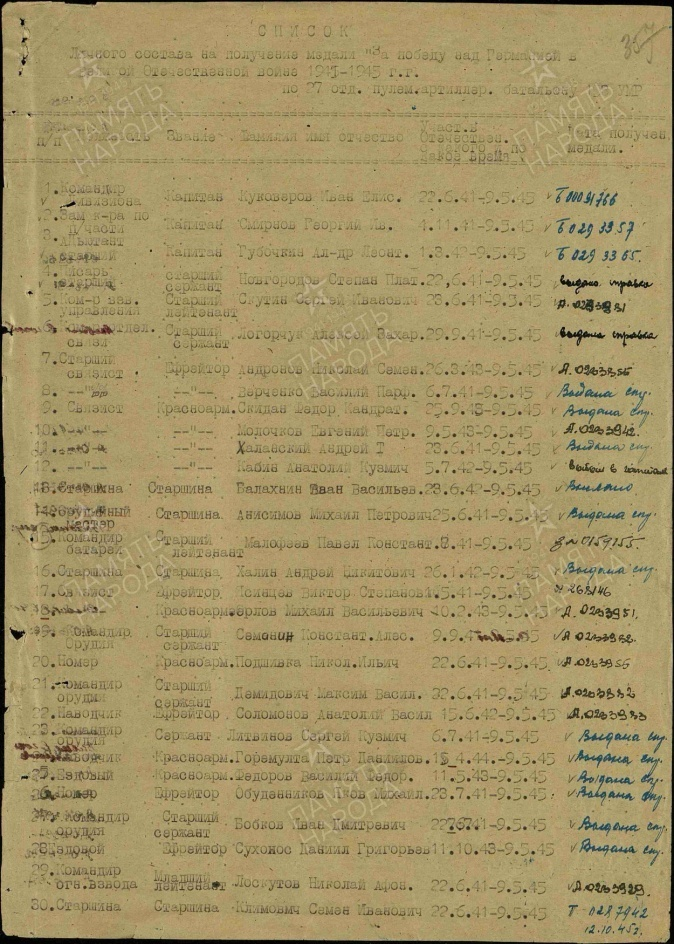 357
СПИСОК
Личного состава на получение медали "За победу над Германией в
Великой Отечественной войне 1941-1945 г.г.
по 27 отд. пулем.артиллер. батальону УИР
п/п Звание Фамилия имя отчество Участ.в Отечествен. по Дата получен. медали.
1. Командир дивизиона Капитан Куковеров Иван Елис. 22.6.41-9.5.45 Б 00091766
2. Зам к-ра по п/части Капитан Смирнов Георгий Ив. 4.11.41-9.5.45 Б 029 3357
3. Адъютант старший Капитан Губочкин Ал-др Леонт. 1.8.42-9.5.45 Б 029 3365.
4. Писарь старший старший сержант Новгородов Степан Плат. 22,6.41-9.5.45 выдана справка
5. Ком-р взв. управления Старший лейтенант Скутин Сергей Иванович 23.6.41-9.5.45 А.0233931
6. отдел. связи Старший сержант Логорчук Алексей Захар. 29.9.41-9.5.45 выдана справка
7. Старший связист Ефрейтор Андронов Николай Семен. 26.3.43-9.5.45 А.0233955
8. --"-- --"-- Верченко Василий Парф. 6.7.41-9.5.45 Выдана спр.
9. Связист Красноарм. Скидан Федор Кандрат. 25.9.43-9.5.45 Выдана спр.
10. --"-- --"-- Молочков Евгений Петр. 9.5.43-9.5.45 А.0233942.
11. --"-- --"-- Халанский Андрей Т 23.6.41-9.5.45 Выдана спр.
12. --"-- --"-- Кабин Анатолий Кузмич 5.7.42-9.5.45
13. Старшина Старшина Балахнин Иван Васильев. 23.6.42-9.5.45 Выслано
14. Орудийный мастер Старшина Анисимов Михаил Петрович 25.6.41-9.5.45 Выдана спр.
15. Командир батареи Старший лейтенант Малофеев Павел Констант. 41-9.5.45
16. Старшина Старшина Халин Андрей Никитович 26.1.42-9.5.45 Выдана спр.
17. Связист Ефрейтор Ясинцев Виктор Степанов 1.5.41-9.5.45 268146
18. Красноарм. Орлов Михаил Васильевич 10.2.43-9.5.45 А.0233951.
19. Командир орудия Старший сержант Семонин Констант.Алес. А 0233932.
20. Номер Красноарм. Подшивка Никол.Ильич 22.6.41-9.5.45 А.0233956
21. Командир орудия Старший сержант Демидович Максим Васил. 22.6.41-9.5.45 А.0233932
22. Наводчик Ефрейтор Соломонов Анатолий Васил 15.6.42-9.5.45 А.0233933
23. Командир орудия Сержант Литвинов Сергей Кузмич 6.7.41-9.5.45 Выдана спр.
Наводчик Красноарм. Горемулта Петр Данилов. 15.4.44.-9.5.45 Выдана спр.
25. Ездовый Красноарм. Федоров Василий Федор. 11.5.43-9.5.45 Выдана спр.
26. Номер Ефрейтор Обуденников Яков Михаил. 23.7.41-9.5.45 Выдана спр.
27. Командир орудия Старший сержант Бобков Иван Дмитревич 41-9.5.45 Выдана спр.
28. Ездовой Ефрейтор Сухонос Даниил Григорьев 11.10.43-9.5.45 Выдана спр.
29. Командир огн.взвода Младший лейтенант Лоскутов Николай Афон. 22.6.41-9.5.45 А 0233929.
30. Старшина Старшина Климович Семен Иванович 22.6.41-9.5.45 Т 0287942
12.10.45г.
ПАМЯТЬ НАРОДА